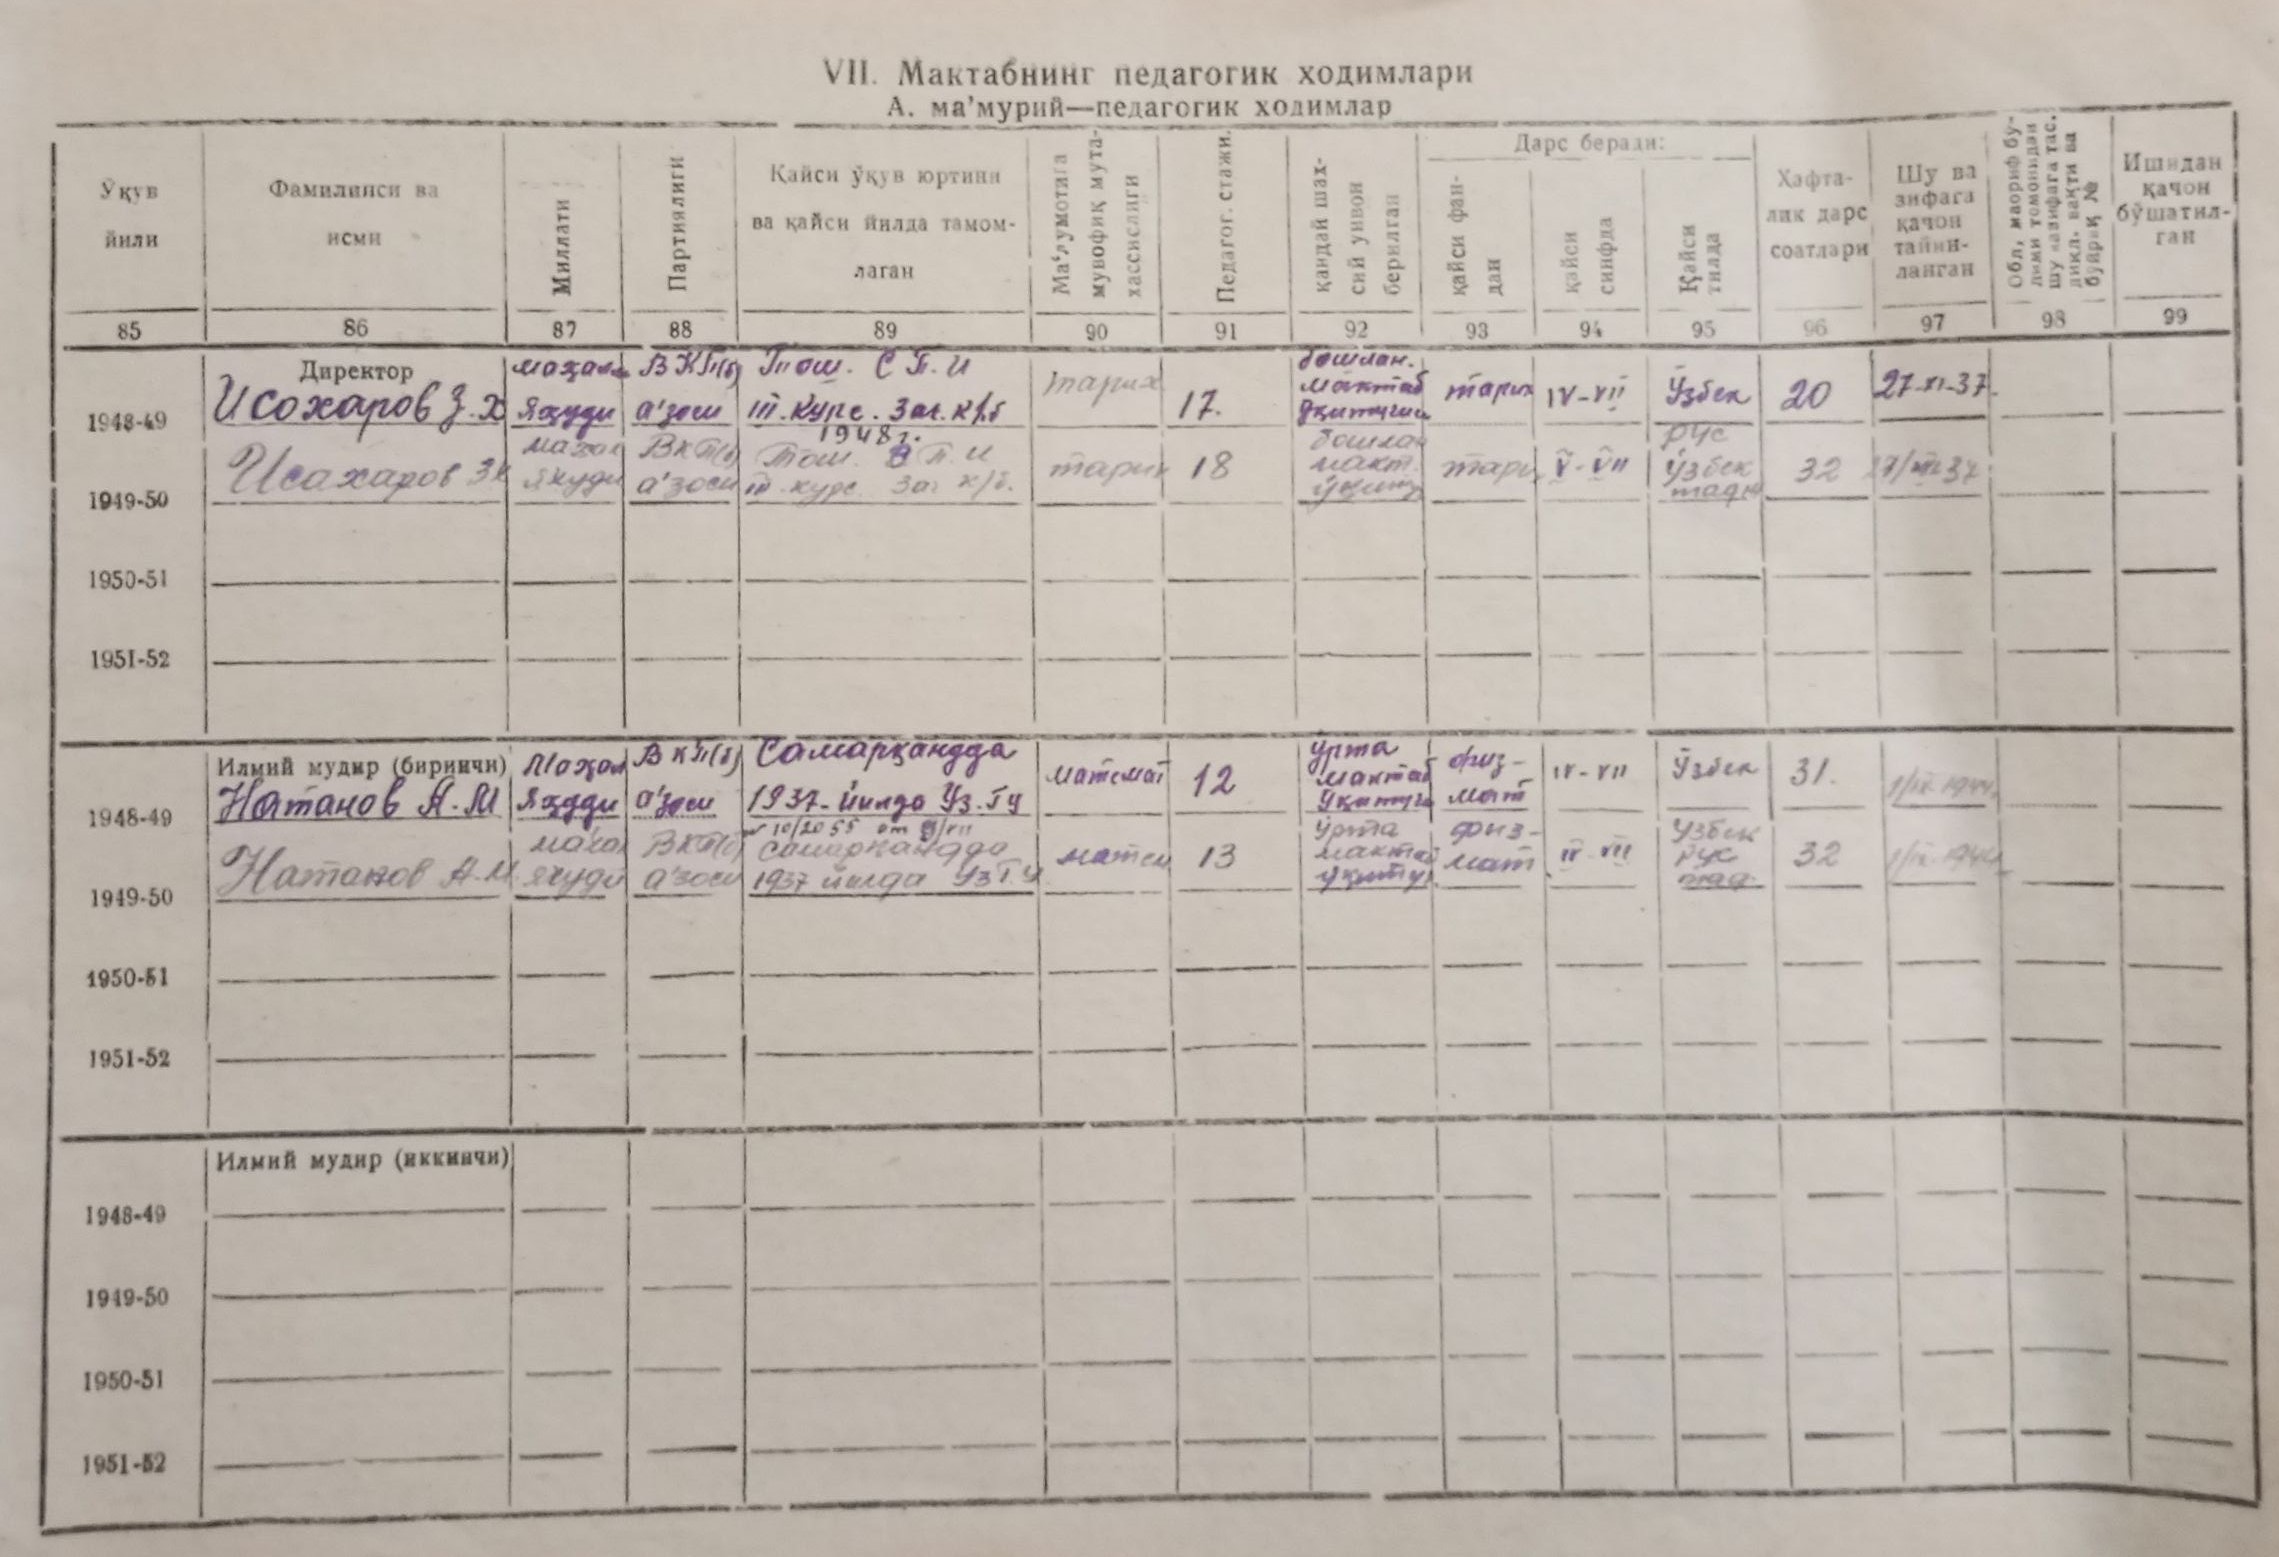 VII. Мактабнинг педагогик ходимлари
А. ма’мурий—педагогик ходимлар
Ўқув йили
Фамилииси ва исми
Миллати
Партиялиги
Қайси ўқув юртини ва қайси йилда тамом-лаган
Ма‘лумотига мувофиқ мута-хассислиги
Педагог. стажи.
қандай шах-сий унвон берилган
Дарс беради:
қайси фан-дан
қайси синфда
Қайси тилда
Хафта-лик дарс соатлари
Шу ва зифага қачон тайин-ланган
Обл, маориф бў-лими томонидан шу вазифага тас. дикл. вақти ва буйриқ №
Ишидан қачон бўшатил-ган
85 86 87 88 89 90 91 92 93 94 95 96 97 98 99
Директор
1948-49 Исохаров З.Х
яҳуди
ВКП(б) а’зоси
Тош. С П. И
III. курс. Заг. к/б
1948 г.
тарих
17.
бошлан. мактаб
тарих
IV-VII
Ўзбек
20
27-XI-37.
1949-50 Исахаров
яҳуди
ВКП(б) а’зоси
Тош. П. И
III курс. Заг к/б.
тарих
18
бошлан макт.
V-VII
рус Ўзбек
32
1950-51
1951-52
Илмий мудир (биринчи)
1948-49 Натанов А.М
яҳуди
ВКП(б) а’зоси
Самарқандда
1937-йилда Уз.ГУ
математ
12
ўрта мактаб
физ-мат
IV-VII
Ўзбек
31.
1949-50 Натанов А.М.
яҳуди
ВКП(б) а’зоси
самарқандда
1937 йилда УзГУ
матем
13
ўрта мактаб
физ-мат
IV-VII
Узбек рус
32
1950-51
1951-52
Илмий мудир (иккинчи)
1948-49
1949-50
1950-51
1951-52